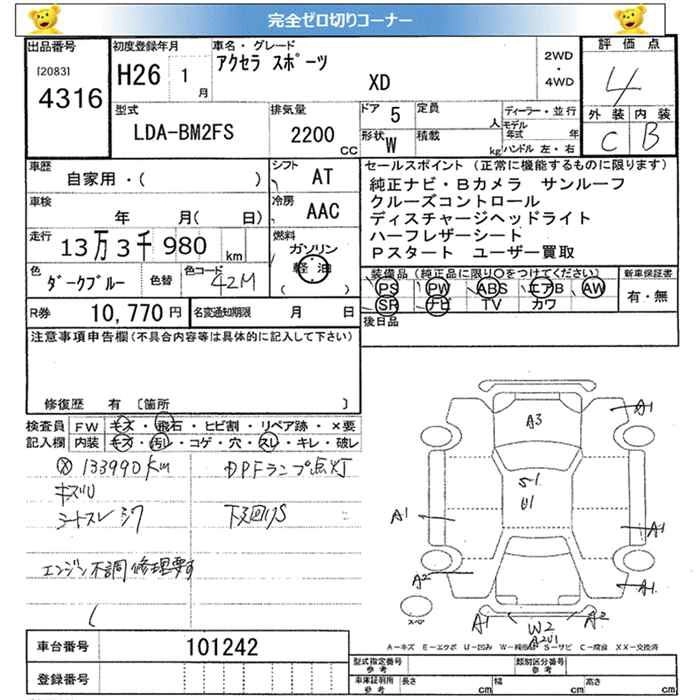 完全ゼロ切りコーナー
出品番号
[2083]
4316
初度登録年月
H26 1
月
車名・グレード
アクセラ スポーツ
XD
2WD
・
4WD
評価点
4
外装 内装
C B
型式
LDA-BM2FS
排気量
2200
CC
ドア 5
定員
人
形状 W
積載
kg
ディーラー・並行
モデル
年式 年
ハンドル 左・右
車歴
自家用・( )
シフト AT
車検
年 月( 日)
冷房 AAC
走行
13万3千980 km
燃料
ガソリン
軽油
( )
色
ダークブルー
色替
色コード
42M
R券 10,770円
名変通知期限 月 日
セールスポイント (正常に機能するものに限ります)
純正ナビ・Bカメラ サンルーフ
クルーズコントロール
ディスチャージヘッドライト
ハーフレザーシート
Pスタート ユーザー買取
装備品(純正品に限り○をつけてください)
PS PW ABS エアB AW
SR ナビ TV カワ
新車保証書
有・無
後日品
注意事項申告欄(不具合内容等は具体的に記入して下さい)
修復歴 有 〔箇所 〕
検査員
記入欄
FW キズ・飛石・ヒビ割・リペア跡・×要
内装 キズ・汚レ・コゲ・穴・スレ・キレ・破レ
133990Km
DPFランプ点灯
キズU
シートスレシワ
下回りS
エンジン不調 修理要す
A3
A1
S1
U1
A1
A1
A2
A1
A1
W2
A2
A2U1
スペア
A-キズ E-エクボ U-凹み W-補修跡 S-サビ C-腐食 XX-交換済
車台番号 101242
登録番号
型式指定番号
参考
類別区分番号
参考
車庫証明用
参考
長さ cm
幅 cm
高さ cm